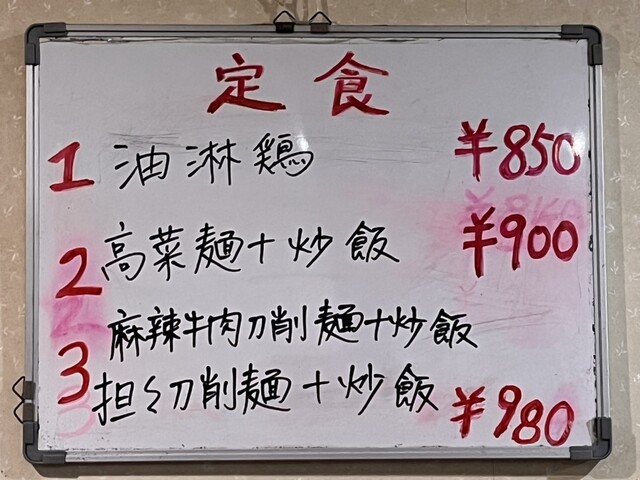 定食
1 油淋鶏 ¥850
2 高菜麺+炒飯 ¥900
麻辣牛肉刀削麺+炒飯
3 担々刀削麺+炒飯 ¥980